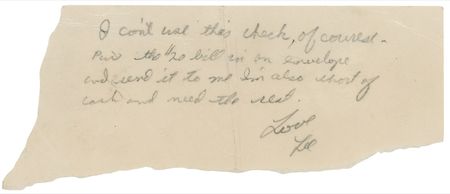 I can't use this check, of course.
Put the $20 bill in an envelope
and send it to me I'm also short of
cash and need the rest.
Love
Lee